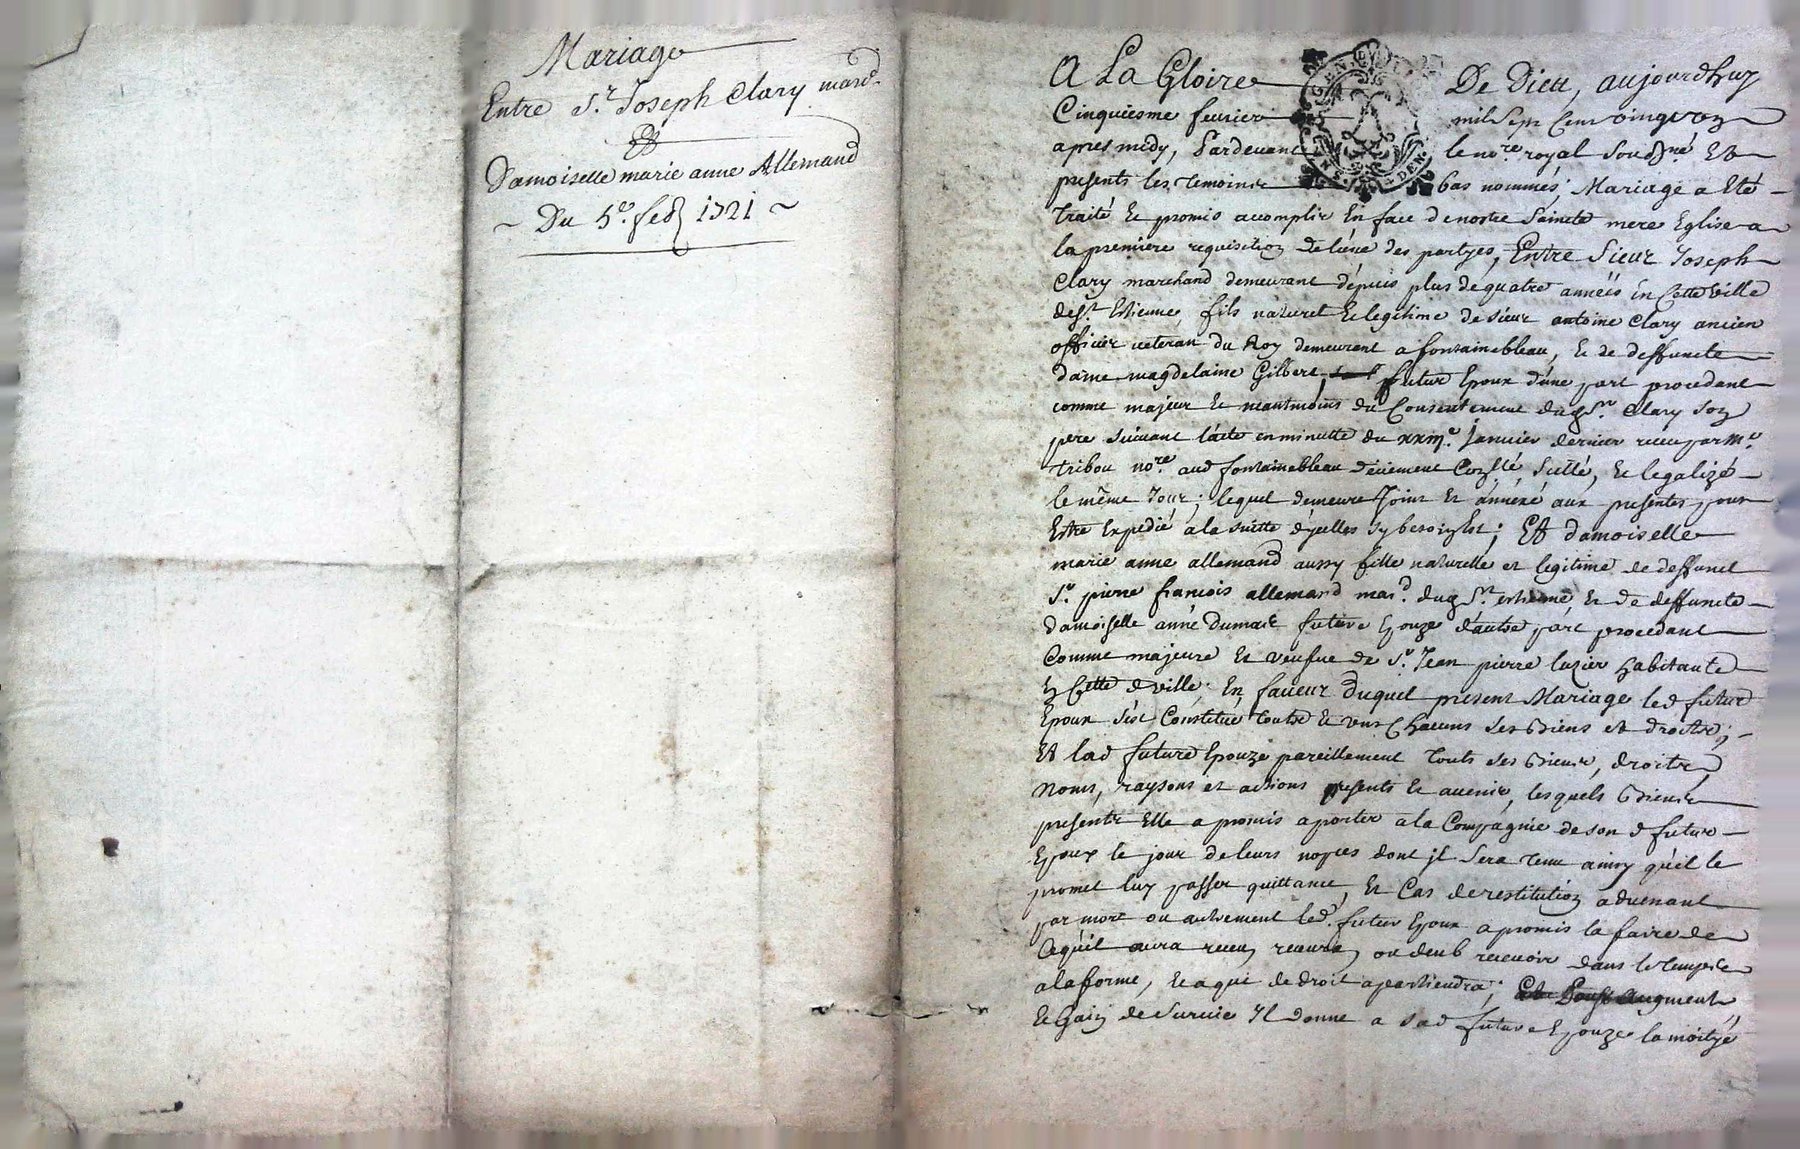 Mariage
Entre Sr. Joseph Clary march.
Et
Damoiselle marie anne Allemand
~ Du 5e. feb 1721 ~
A La Gloire De Dieu, aujourdhuy
Cinquiesme feurier mil Sept Cent vingt un
apres midy, Pardeuant le nore. royal Soussigné Et
presents les Temoins bas nommés, Mariage a Eté
Traité Et promis accomplir En face de nostre Sainte mere Eglise a
la premiere requisition de L'une des partyes, Entre Sieur Joseph
Clary marchand demeurant dépuis plus de quatre années En Cette Ville
de St. Estienne, fils naturel Et legitime de sieur antoine Clary ancien
officier veteran du Roy demeurant a fontainebleau, Et de deffuncte
dame magdelaine Gilbert, futur Epoux d'une part procedant
comme majeur Et neantmoins du Consentement dud Sr. Clary son
pere suiuant l'acte en minutte du xxiije. Januier dernier receu par me.
tribou nore. aud fontainebleau déuement Scellé, Et legalizé
le même Jour; lequel demeure Joint Et annéxé aux presentes pour
Estre Expedié a la suitte d'jcelles sy besoin Est; Et damoiselle
marie anne allemand aussy fille naturelle et legitime de deffunct
Sr. pierre francois allemand mard. dud St. estienne, Et de deffuncte
damoiselle anne Dumarc future Epouze d'autre part procedant
Comme majeure Et veufue de Sr. Jean pierre luzier habitante
En Cette d ville. En faueur duquel present Mariage led futur
Epoux s'est Constitué touts Et uns Chacuns ses Biens et droits;
Et lad future Epouze pareillement Touts ses Biens, droits,
Noms, raysons et actions presents Et auenir, lesquels Biens
presents Elle a promis aporter a la Compagnie de son d futur
Epoux le jour de leurs nopces dont jl Sera Tenu ainsy qu'il le
promet luy passer quittance, Et Cas de restitution aduenant
par mort ou autrement led. futur Epoux a promis la faire de
Ce qu'il aura receu, ou deub receuoir dans le Temps Et
a la forme, Et a qui de droit apartiendra; Augment,
Et Gain de Suruie Il donne a sad future Epouze la moityé